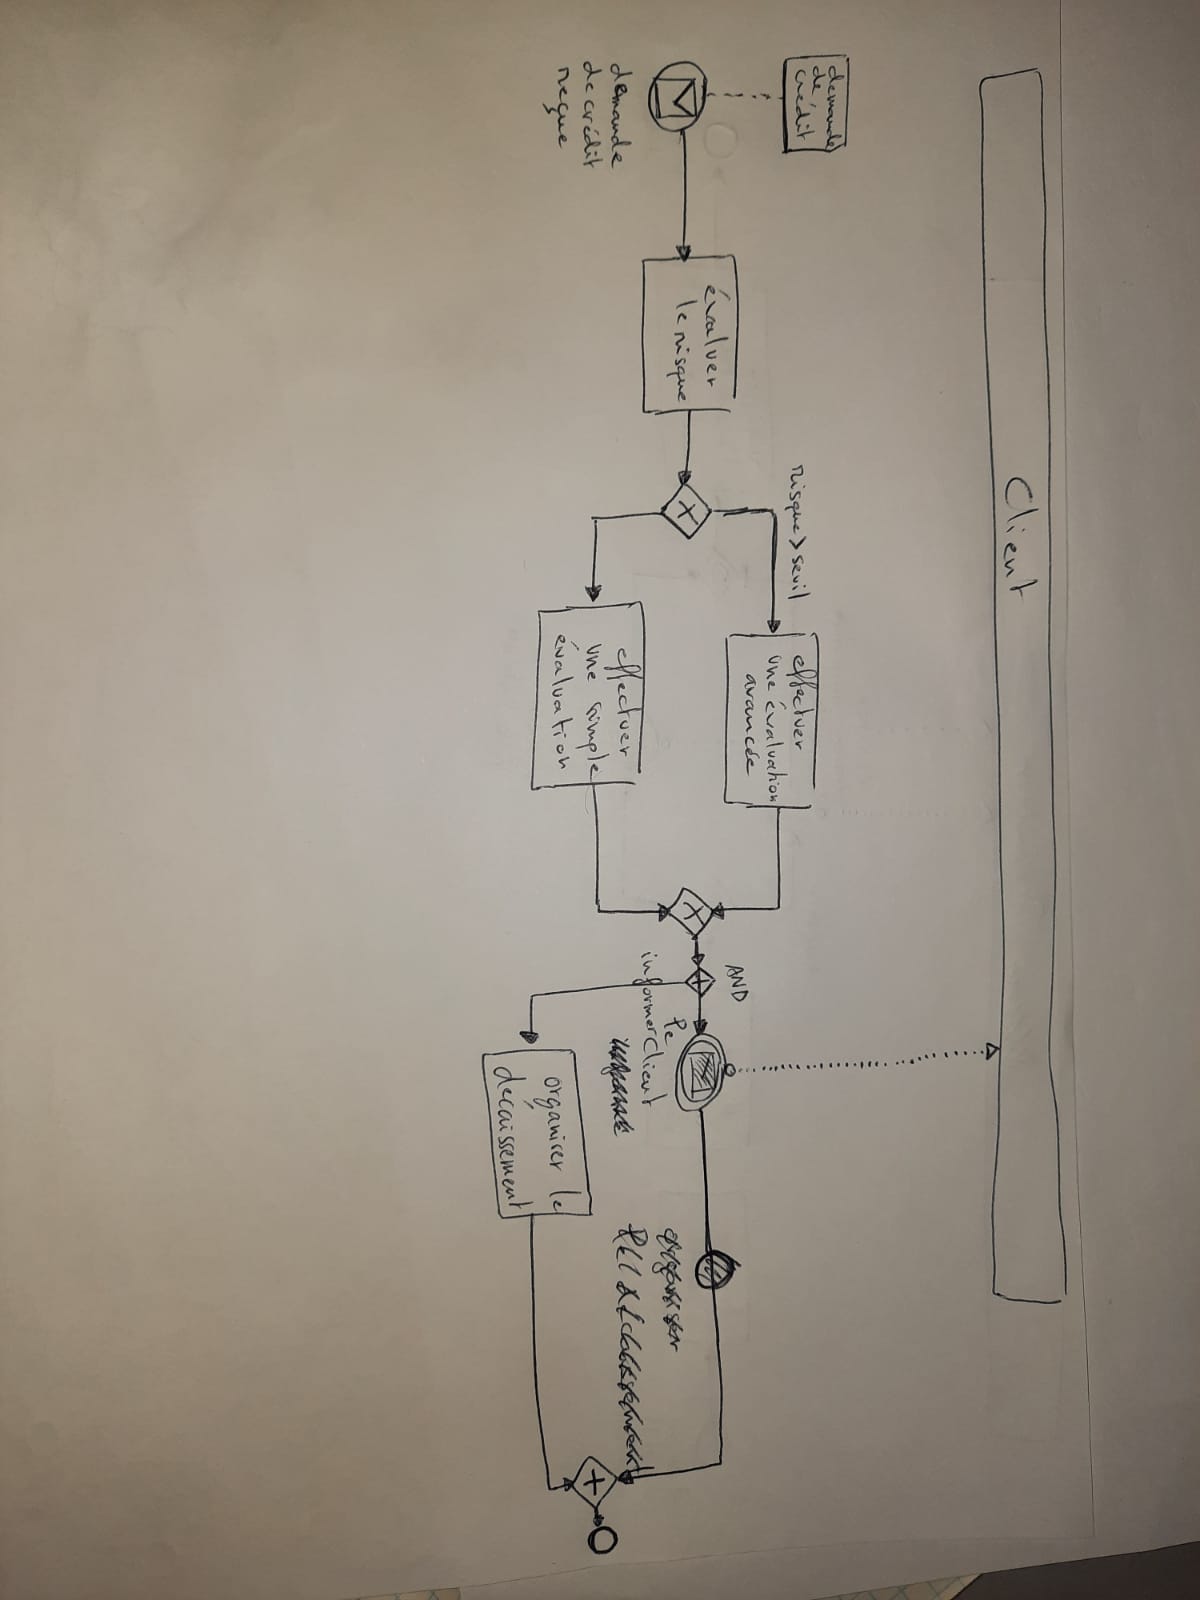 Client
demande
de
crédit
demande
de crédit
reçue
évaluer
le risque
risque > seuil
effectuer
une évaluation
avancée
effectuer
une simple
évaluation
AND
le
informer Client
organiser le
décaissement